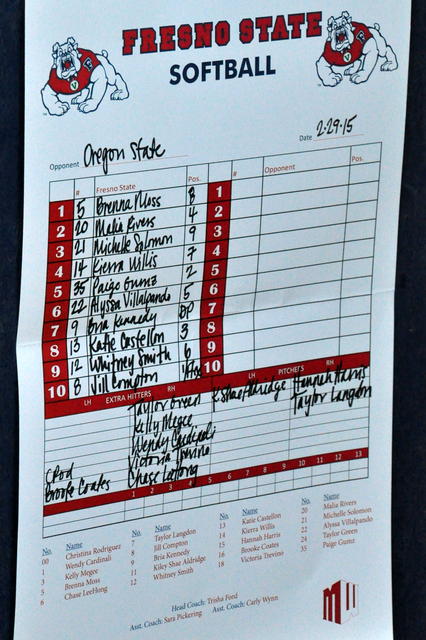 FRESNO STATE
SOFTBALL
Opponent Oregon State Date 2·29·15
# Fresno State Pos. # Opponent Pos.
1 5 Brenna Moss 8 1
2 20 Malia Rivers 4 2
3 21 Michelle Solomon 9 3
4 14 Kierra Willis 7 4
5 35 Paige Gumz 2 5
6 22 Alyssa Villalpando 5 6
7 9 Bria Kennedy DP 7
8 13 Katie Castellon 3 8
9 12 Whitney Smith 6 9
10 8 Jill Compton 10
LH EXTRA HITTERS RH LH PITCHERS RH
Taylor Green K.Shae Aldridge Hannah Harris
Kelly Megee Taylor Langdon
Wendy Cardinali
Victoria Trevino
CRod
Brooke Coates Chase LeeHong
1 2 3 4 5 6 7 8 9 10 11 12 13
No. Name No. Name No. Name No. Name
00 Christina Rodriguez 7 Taylor Langdon 13 Katie Castellon 20 Malia Rivers
1 Wendy Cardinali 8 Jill Compton 14 Kierra Willis 21 Michelle Solomon
3 Kelly Megee 9 Bria Kennedy 15 Hannah Harris 22 Alyssa Villalpando
5 Brenna Moss 11 Kiley Shae Aldridge 16 Brooke Coates 27 Taylor Green
6 Chase LeeHong 12 Whitney Smith 18 Victoria Trevino 35 Paige Gumz
Head Coach: Trisha Ford
Asst. Coach: Sara Pickering Asst. Coach: Carly Wynn
MW